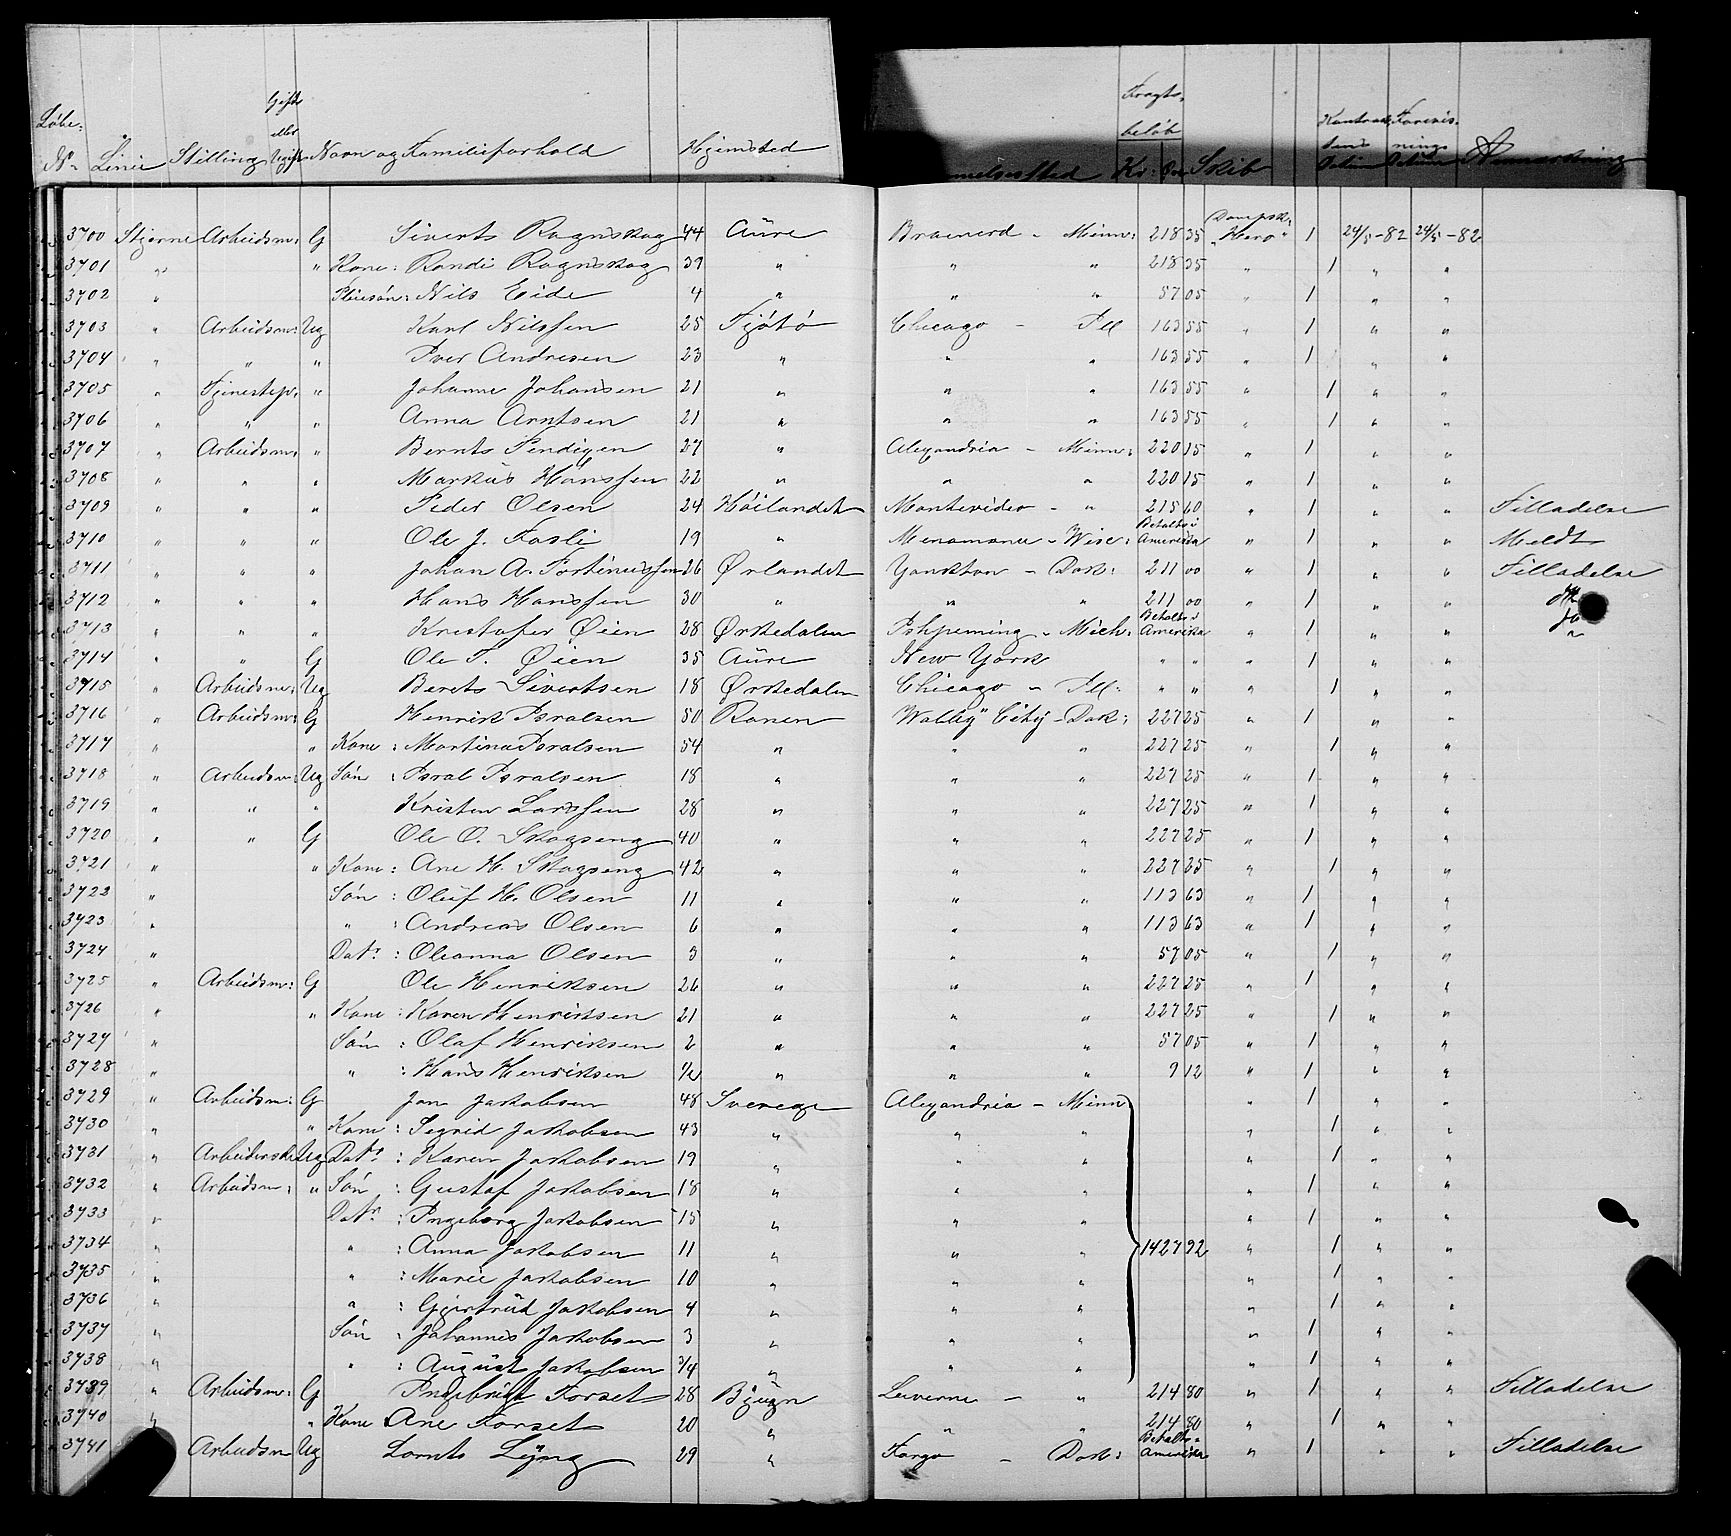 Løbe: N. Linie Stilling Gift eller Ugift Navn og Familieforhold Hjemsted Fragtbeløb Kr: Skib Datum Datum Anmærkning
3700 Stjerne Arbeidsm: G Siverts Rognskog 44 Aure Brainerd - Minn: 218 35 Dampsk: "Hero" 1 24/5-82 24/5-82
3701 " " Kone: Randi Rognskog 39 " " " 218 35 " 1 " "
3702 " Pleiesøn: Nils Eide 4 " " " 57 05 " 1 " "
3703 " Arbeidsm: Ug Karl Nilssen 25 Tjøtø Chicago - Ill 163 55 " 1 " "
3704 " " " Iver Andresen 23 " " " 163 55 " 1 " "
3705 " Tjenestep: " Johanne Johansen 21 " " " 163 55 " 1 " "
3706 " " " Anna Arntsen 21 " " " 163 55 " 1 " "
3707 " Arbeidsm: " Bernts 27 " Alexandria - Minn: 220 15 " 1 " "
3708 " " " Markus Hanssen 22 " " " 220 15 " 1 " "
3709 " " " Peder Olsen 24 Høilandet Montevideo - " 215 60 " 1 " " Filladelse
3710 " " " Ole J. Fosli 19 " Menomonee - Wisc: Betalt i Amerika " 1 " " Meldt
3711 " " " Johan A. 26 Ørlandet Yankton - Dak: 211 00 " 1 " " Filladelse
3712 " " " Hans Hanssen 30 " " " 211 00 " 1 " "
3713 " " " Kristofer Øien 28 Ørkedalen Ishpeming - Mich: Betalt i Amerika " 1 " " "
3714 " " G Ole T. Øien 35 Aure New York " " " 1 " "
3715 " Arbeidsm: Ug Berets Sivertsen 18 Ørkedalen Chicago - Ill: " " " 1 " "
3716 " Arbeidsm: G Henrik Isralsen 50 Ranen Valley City - Dak: 227 25 " 1 " "
3717 " " Kone: Martina Isralsen 54 " " " 227 25 " 1 " "
3718 " Arbeidsm: Ug Søn: Isral Isralsen 18 " " " 227 25 " 1 " "
3719 " " " Kristen Larssen 28 " " " 227 25 " 1 " "
3720 " " G Ole O. Skogseng 40 " " " 227 25 " 1 " "
3721 " " Kone: Ane H. Skogseng 42 " " " 227 25 " 1 " "
3722 " Søn: Oluf H. Olsen 11 " " " 113 63 " 1 " "
3723 " " : Andreas Olsen 6 " " " 113 63 " 1 " "
3724 " Datr: Oleanna Olsen 3 " " " 57 05 " 1 " "
3725 " Arbeidsm: G Ole Henriksen 26 " " " 227 25 " 1 " "
3726 " " Kone: Karen Henriksen 21 " " " 227 25 " 1 " "
3727 " Søn: Olaf Henriksen 2 " " " 57 05 " 1 " "
3728 " " : Hans Henriksen 1/2 " " " 9 12 " 1 " "
3729 " Arbeidsm: G Jon Jakobsen 48 Sverige Alexandria - Minn " 1 " "
3730 " " Kone: Segrid Jakobsen 43 " " " " 1 " "
3731 " Arbeiderske Ug Datr: Karen Jakobsen 19 " " " " 1 " "
3732 " Arbeidsm: " Søn: Gustaf Jakobsen 18 " " " " 1 " "
3733 " Datr: Ingeborg Jakobsen 15 " " " " 1 " "
3734 " " : Anna Jakobsen 11 " " " 1427 92 " 1 " "
3735 " " : Marie Jakobsen 10 " " " " 1 " "
3736 " " : Gjertrud Jakobsen 4 " " " " 1 " "
3737 " Søn: Johannes Jakobsen 3 " " " " 1 " "
3738 " " : August Jakobsen 3/4 " " " " 1 " "
3739 " Arbeidsm: G Ingebrigt Forset 28 Bjugn Luverne - " 214 80 " 1 " " Filladelse
3740 " " Kone Ane Forset 20 " " " 214 80 " 1 " "
3741 Arbeidsm Ug Lornts Lÿng 29 " Fargo - Dak: Betalt i Amerika " 1 " " Filladelse